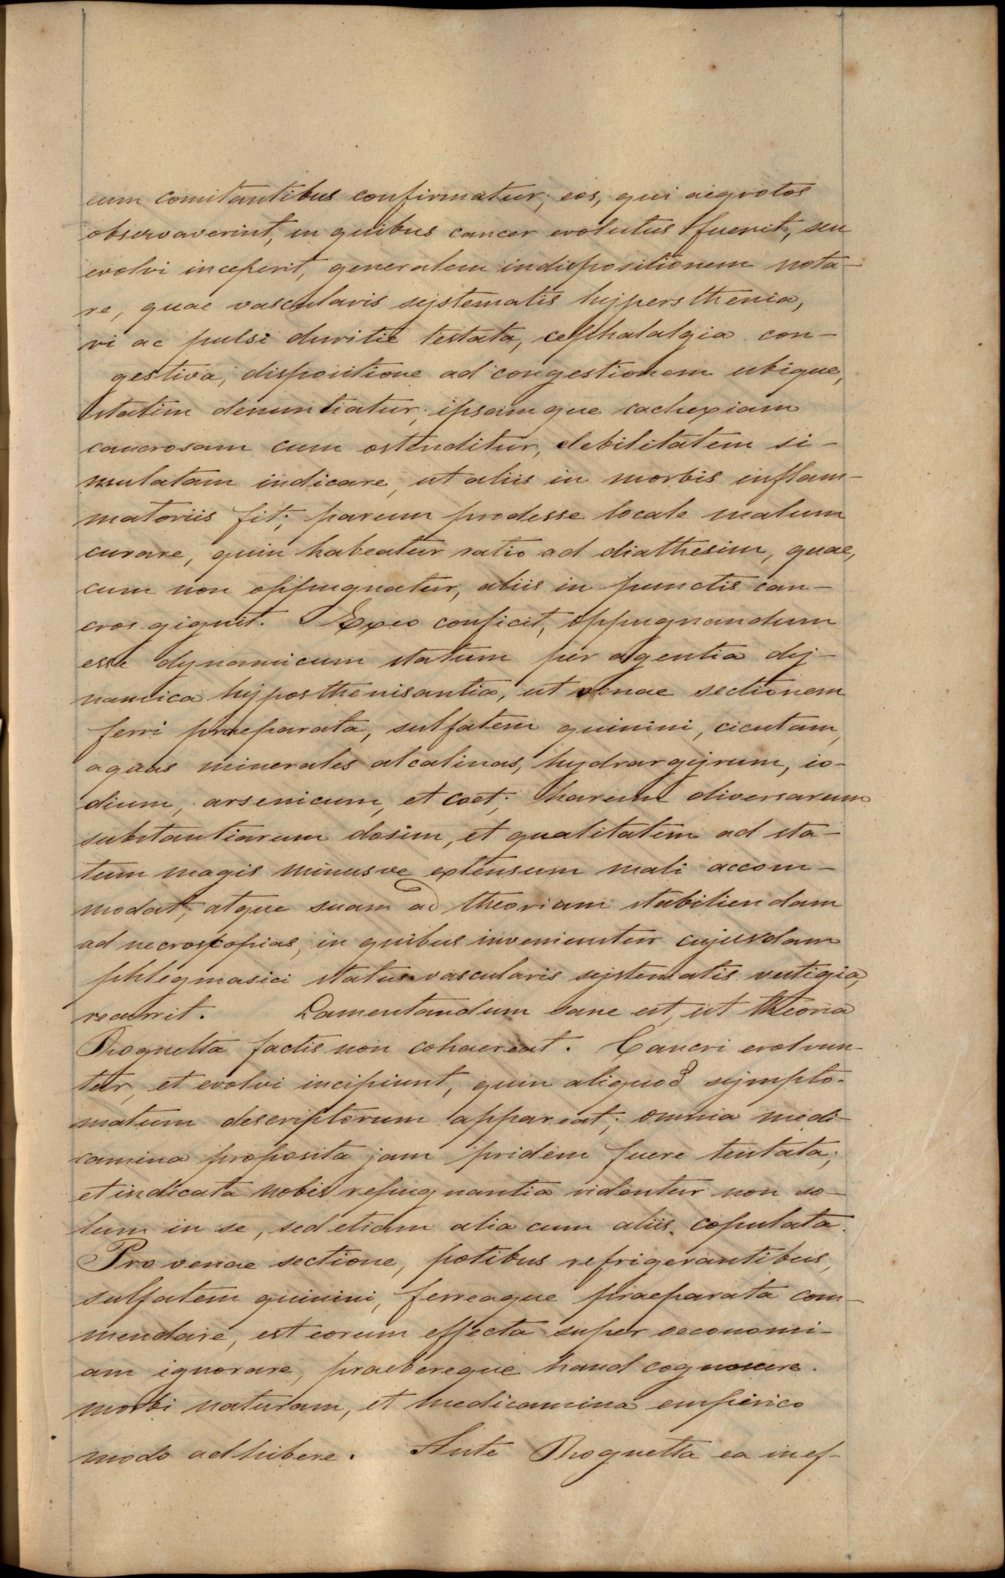 cum comitantibus confirmatur; eos, qui aegrotos
observaverint, in quibus cancer evolutus fuerit, seu
evolvi inceperit, generalem indispositionem nota-
re, quae vascularis systematis hypersthenia,
vi ac pulsi duritie testata, cephalalgia con-
gestiva, dispositione ad congestionem ubique,
statim denuntiatur; ipsamque cachexiam
cancrosam cum ostenditur, debilitatem si-
mulatam indicare, ut aliis in morbis inflam-
matoriis fit; parum prodesse locale malum
curare, quin habeatur ratio ad diathesim, quae,
cum non oppugnatur, aliis in punctis can-
cros gignit. Ex eo conficit, oppugnandum
esse dynamicum statum per agentia dy-
namica hyposthenisantia, ut venae sectionem
ferri praeparata, sulfatem quinini, cicutam,
aquas minerales alcalinas, hydrargyrum, io-
dium, arsenicum, et caet; harum diversarum
substantiarum dosim, et qualitatem ad sta-
tum magis minusve extensum mali accom-
modat, atque suam ad theoriam stabiliendam
ad necroscopias, in quibus inveniuntur cujusdam
phlegmasici status vascularis systematis vestigia,
recurrit. Lamentandum sane est, ut theoria
Rognetta factis non cohaereat. Cancri evolvun-
tur, et evolvi incipiunt, quin aliquod sympto-
matum descriptorum appareat; omnia medi-
camina proposita jam pridem fuere tentata;
et indicata nobis repugnantia videntur non so-
lum in se, sed etiam alia cum aliis copulata.
Pro venae sectione, potibus refrigerantibus,
sulfatem quinini, ferreaque praeparata com-
mendare, est eorum effecta super oeconomi-
am ignorare, praebereque haud cognoscere
morbi naturam, et medicamina empirico
modo adhibere. Ante Rognetta ea inef-